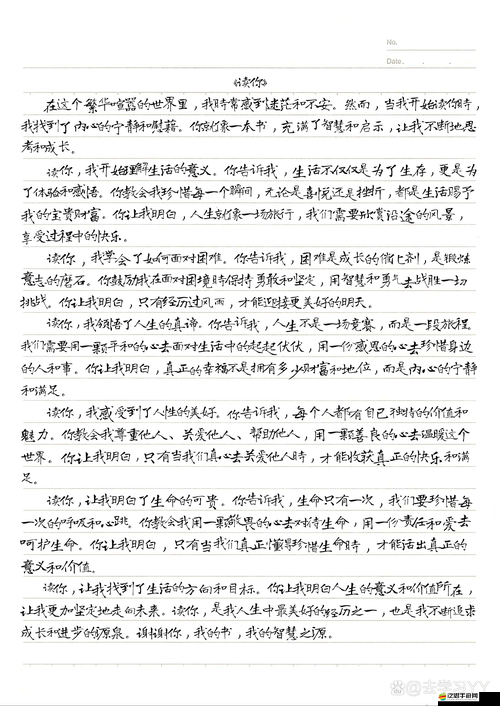 No.
Date.
《读你》
在这个繁华喧嚣的世界里，我时常感到迷茫和不安。然而，当我开始读你时，
我找到了内心的宁静和慰藉。你就像一本书，充满了智慧和启示，让我不断地思
考和成长。
读你，我开始理解生活的意义。你告诉我，生活不仅仅是为了生存，更是为
了体验和感悟。你教会我珍惜每一个瞬间，无论是喜悦还是挫折，都是生活赐予
我的宝贵财富。你让我明白，人生就像一场旅行，我们需要欣赏沿途的风景，
享受过程中的快乐。
读你，我学会了如何面对困难。你告诉我，困难是成长的催化剂，是锻炼
意志的磨石。你鼓励我在面对困境时保持勇敢和坚定，用智慧和勇气去战胜一切
挑战。你让我明白，只有经历过风雨，才能迎接更美好的明天。
读你，我领悟了人生的真谛。你告诉我，人生不是一场竞赛，而是一段旅程。
我们需要用一颗平和的心去面对生活中的起起伏伏，用一份感恩的心去珍惜身边
的人和事。你让我明白，真正的幸福不是拥有多少财富和地位，而是内心的宁静
和满足。
读你，我感受到了人性的美好。你告诉我，每个人都有自己独特的价值和
魅力。你教会我尊重他人、关爱他人、帮助他人，用一颗善良的心去温暖这个
世界。你让我明白，只有当我们真心去关爱他人时，才能收获真正的快乐和满
足。
读你，让我明白了生命的可贵。你告诉我，生命只有一次，我们要珍惜每
一次的呼吸和心跳。你教会我用一颗敬畏的心去对待生命，用一份责任和爱去
呵护生命。你让我明白，只有当我们真正懂得珍惜生命时，才能活出真正的
意义和价值。
读你，让我找到了生活的方向和目标。你让我明白人生的意义和价值所在，
让我更加坚定地走向未来。读你，是我人生中最美好的经历之一，也是我不断追求
成长和进步的源泉。谢谢你，我的书，我的智慧之源。
@去学习YY